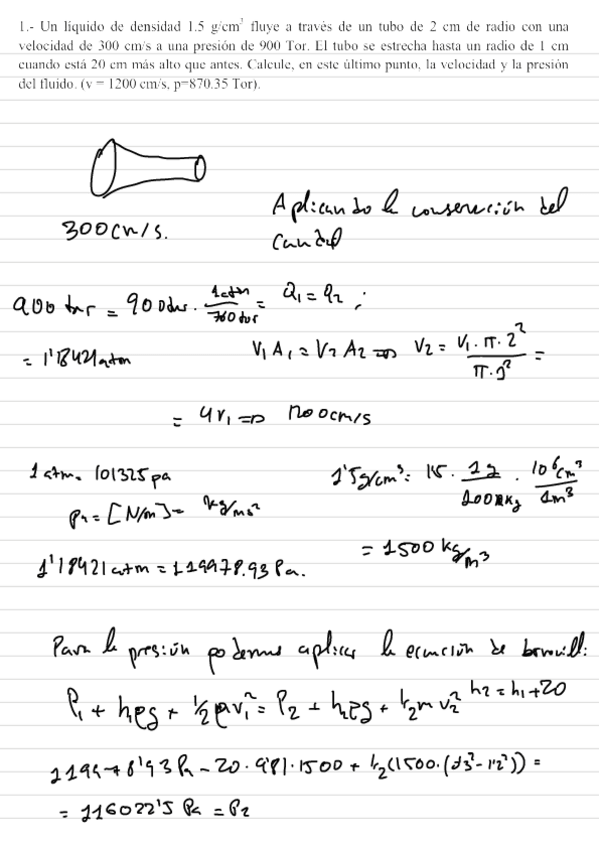 1.- Un liquido de densidad 1.5 g/cm³ fluye a través de un tubo de 2 cm de radio con una
velocidad de 300 cm/s a una presión de 900 Tor. El tubo se estrecha hasta un radio de 1 cm
cuando está 20 cm más alto que antes. Calcule, en este último punto, la velocidad y la presión
del fluido. (v = 1200 cm/s, p=870.35 Tor).
Aplicando la conservación del
300cm/s.
Caudal
900 tor = 900tor. 1atm/760 tor = Q₁ = Q₂ ;
= 1'18421atm
V₁ A₁ = V₂ A₂ => V₂ = V₁ · π · 2²/π · 1² =
= 4v₁ => 1200cm/s
1 atm = 101325 pa
1'5g/cm³ = 1'5 · 1g/1000kg · 10⁶cm³/1m³
P₁ = [N/m] = kg/ms²
= 1500 kg/m³
1'18421 atm = 119978.93 Pa.
Para la presión podemos aplicar la ecuación de
P₁ + h₁ρg + ½ρv₁² = P₂ + h₂ρg + ½m v₂² h₂ = h₁ + 20
- 20 · 9'81 · 1500 + ½(1500 ·
= 116022'5 Pa = P₂